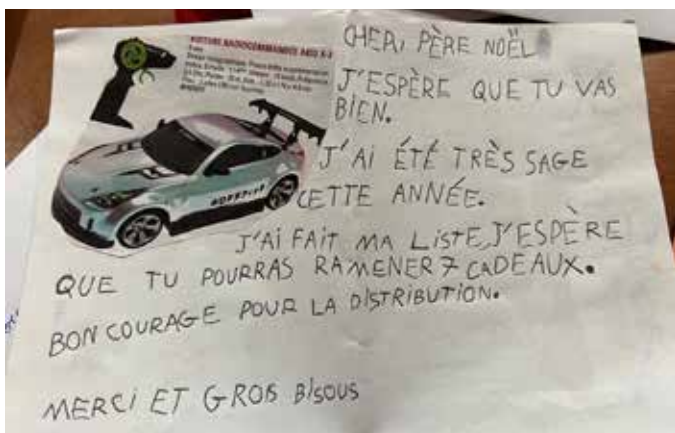 VOITURE RADIOCOMMANDÉE
CHER, PÈRE NOËL
J'ESPÈRE QUE TU VAS
BIEN.
J'AI ÉTÉ TRÈS SAGE
CETTE ANNÉE.
J'AI FAIT MA LISTE, J'ESPÈRE
QUE TU POURRAS RAMENER 7 CADEAUX.
BON COURAGE POUR LA DISTRIBUTION.
MERCI ET GROS BISOUS